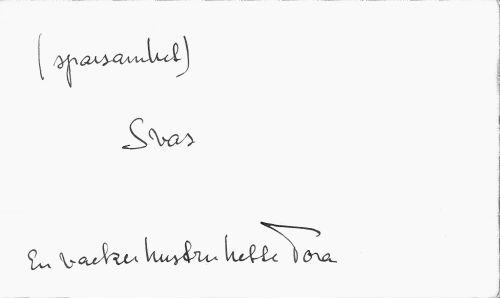 (sparsamhet)
Svas
En vacker hustru hette Tora